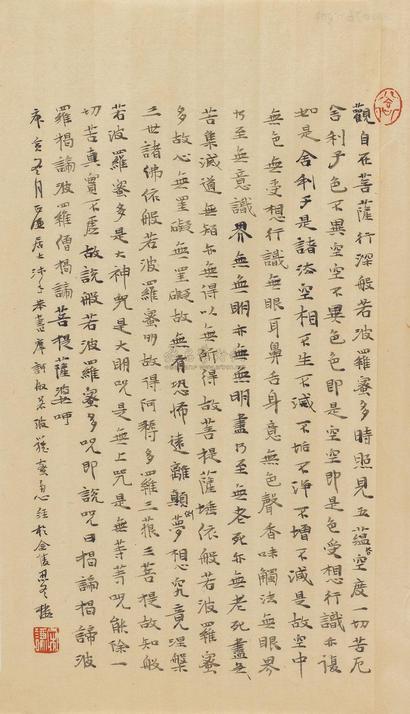 觀自在菩薩行深般若波羅蜜多時照見五蘊皆空度一切苦厄
舍利子色不異空空不異色色即是空空即是色受想行識亦復
如是舍利子是諸法空相不生不滅不垢不淨不增不減是故空中
無色無受想行識無眼耳鼻舌身意無色聲香味觸法無眼界
乃至無意識界無無明亦無無明盡乃至無老死亦無老死盡無
苦集滅道無智亦無得以無所得故菩提薩埵依般若波羅蜜
多故心無罣礙無罣礙故無有恐怖遠離顛倒夢想究竟涅槃
三世諸佛依般若波羅蜜多故得阿耨多羅三藐三菩提故知般
若波羅蜜多是大神咒是大明咒是無上咒是無等等咒能除一
切苦真實不虛故說般若波羅蜜多咒即說咒曰揭諦揭諦波
羅揭諦波羅僧揭諦菩提薩婆呵
居士沙子 書摩訶般若波羅蜜多心經於金陵